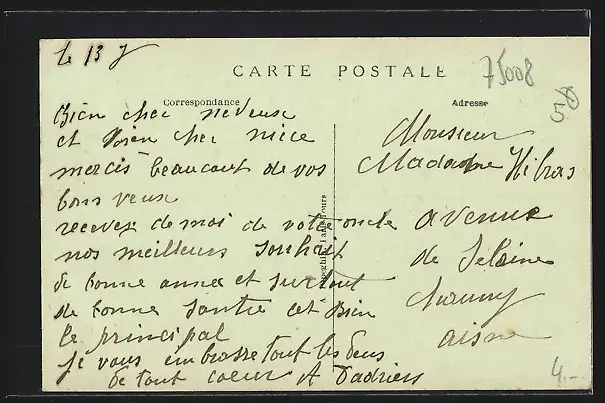 le 13 J
CARTE POSTALE
75008
50
Correspondance
Adresse
Bien cher neveux
et bien cher niece
mercis beaucout de vos
bons veux
recevez de moi de votre oncle
nos meilleurs souhait
de bonne anné et surtout
de bonne santre cet bien
le principal
je vous embrasse tout les deus
de tout coeur A
Monsieur
Madame
avenue
de
chauny
aisne
4.-